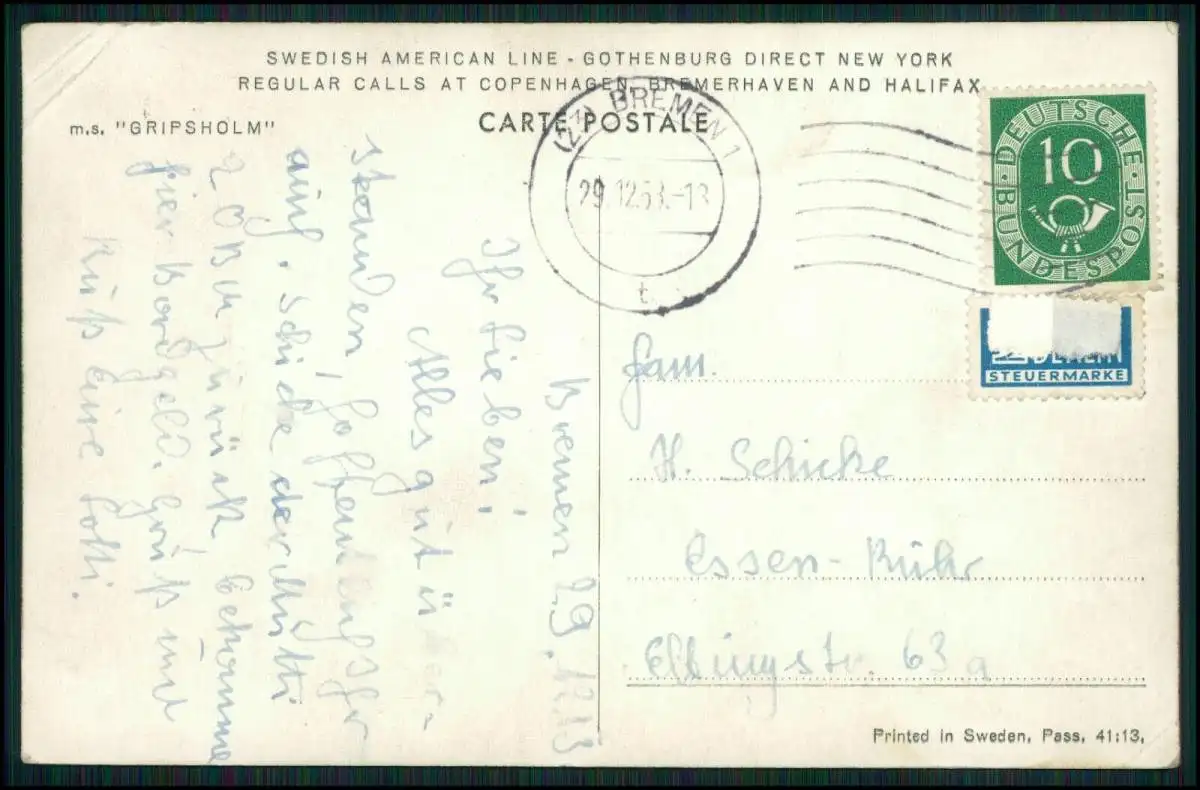 SWEDISH AMERICAN LINE - GOTHENBURG DIRECT NEW YORK
REGULAR CALLS AT COPENHAGEN, BREMERHAVEN AND HALIFAX
m.s. "GRIPSHOLM"
CARTE POSTALE
BREMEN 1
29.12.53.-13
DEUTSCHE BUNDESPOST
10
STEUERMARKE
Bremen 29.12.53
Ihr Lieben!
Alles gut über-
standen, hoffentlich Ihr
auch. Schicke der Mutti
20 DM zurück bekomme
hier Bordgeld. Gruß und
Kuß Eure Lotti.
Fam.
H. Schicke
Essen-Ruhr
Elbingstr. 63a
Printed in Sweden, Pass. 41:13,